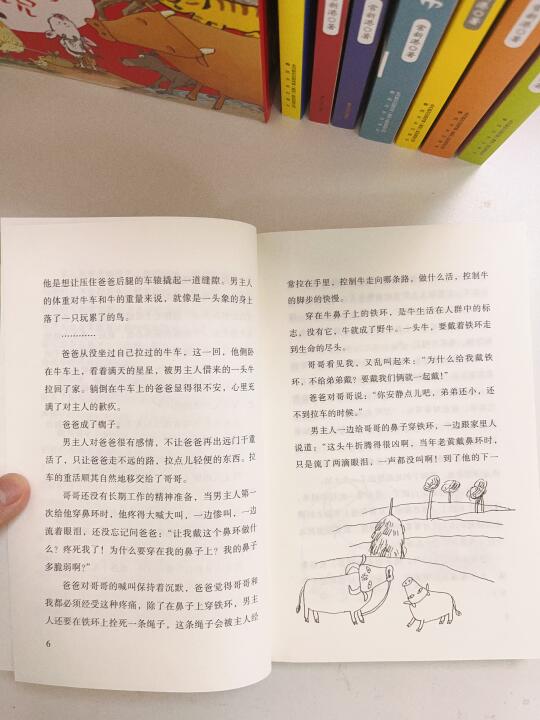 常新港◎著
常新港◎著
常新港◎著
他是想让压住爸爸后腿的车辕撬起一道缝隙。男主人
的体重对牛车和牛的重量来说，就像是一头象的身上
落了一只玩累了的鸟。
…………
爸爸从没坐过自己拉过的牛车，这一回，他侧卧
在牛车上，看着满天的星星，被男主人借来的一头牛
拉回了家。躺倒在牛车上的爸爸显得很不安，心里充
满了对主人的歉疚。
爸爸成了瘸子。
男主人对爸爸很有感情，不让爸爸再出远门干重
活了，只让爸爸走不远的路，拉点儿轻便的东西。拉
车的重活顺其自然地移交给了哥哥。
哥哥还没有长期工作的精神准备，当男主人第一
次给他穿鼻环时，他疼得大喊大叫，一边惨叫，一边
流着眼泪，还没忘记问爸爸：“让我戴这个鼻环做什
么？疼死我了！为什么要穿在我的鼻子上？我的鼻子
多脆弱啊？”
爸爸对哥哥的喊叫保持着沉默，爸爸觉得哥哥和
我都必须经受这种疼痛，除了在鼻子上穿铁环，男主
人还要在铁环上拴死一条绳子，这条绳子会被主人经
6
常拉在手里，控制牛走向哪条路，做什么活，控制牛
的脚步的快慢。
穿在牛鼻子上的铁环，是牛生活在人群中的标
志，没有它，牛就成了野牛。一头牛，要戴着铁环走
到生命的尽头。
哥哥看见我，又乱叫起来：“为什么给我戴铁
环，不给弟弟戴？要戴我们俩就一起戴！”
爸爸对哥哥说：“你安静点儿吧，弟弟还小，还
不到拉车的时候。”
男主人一边给哥哥的鼻子穿铁环，一边跟家里人
说道：“这头牛折腾得很凶啊，当年老黄戴鼻环时，
只是流了两滴眼泪，一声都没叫啊！到了他的下一